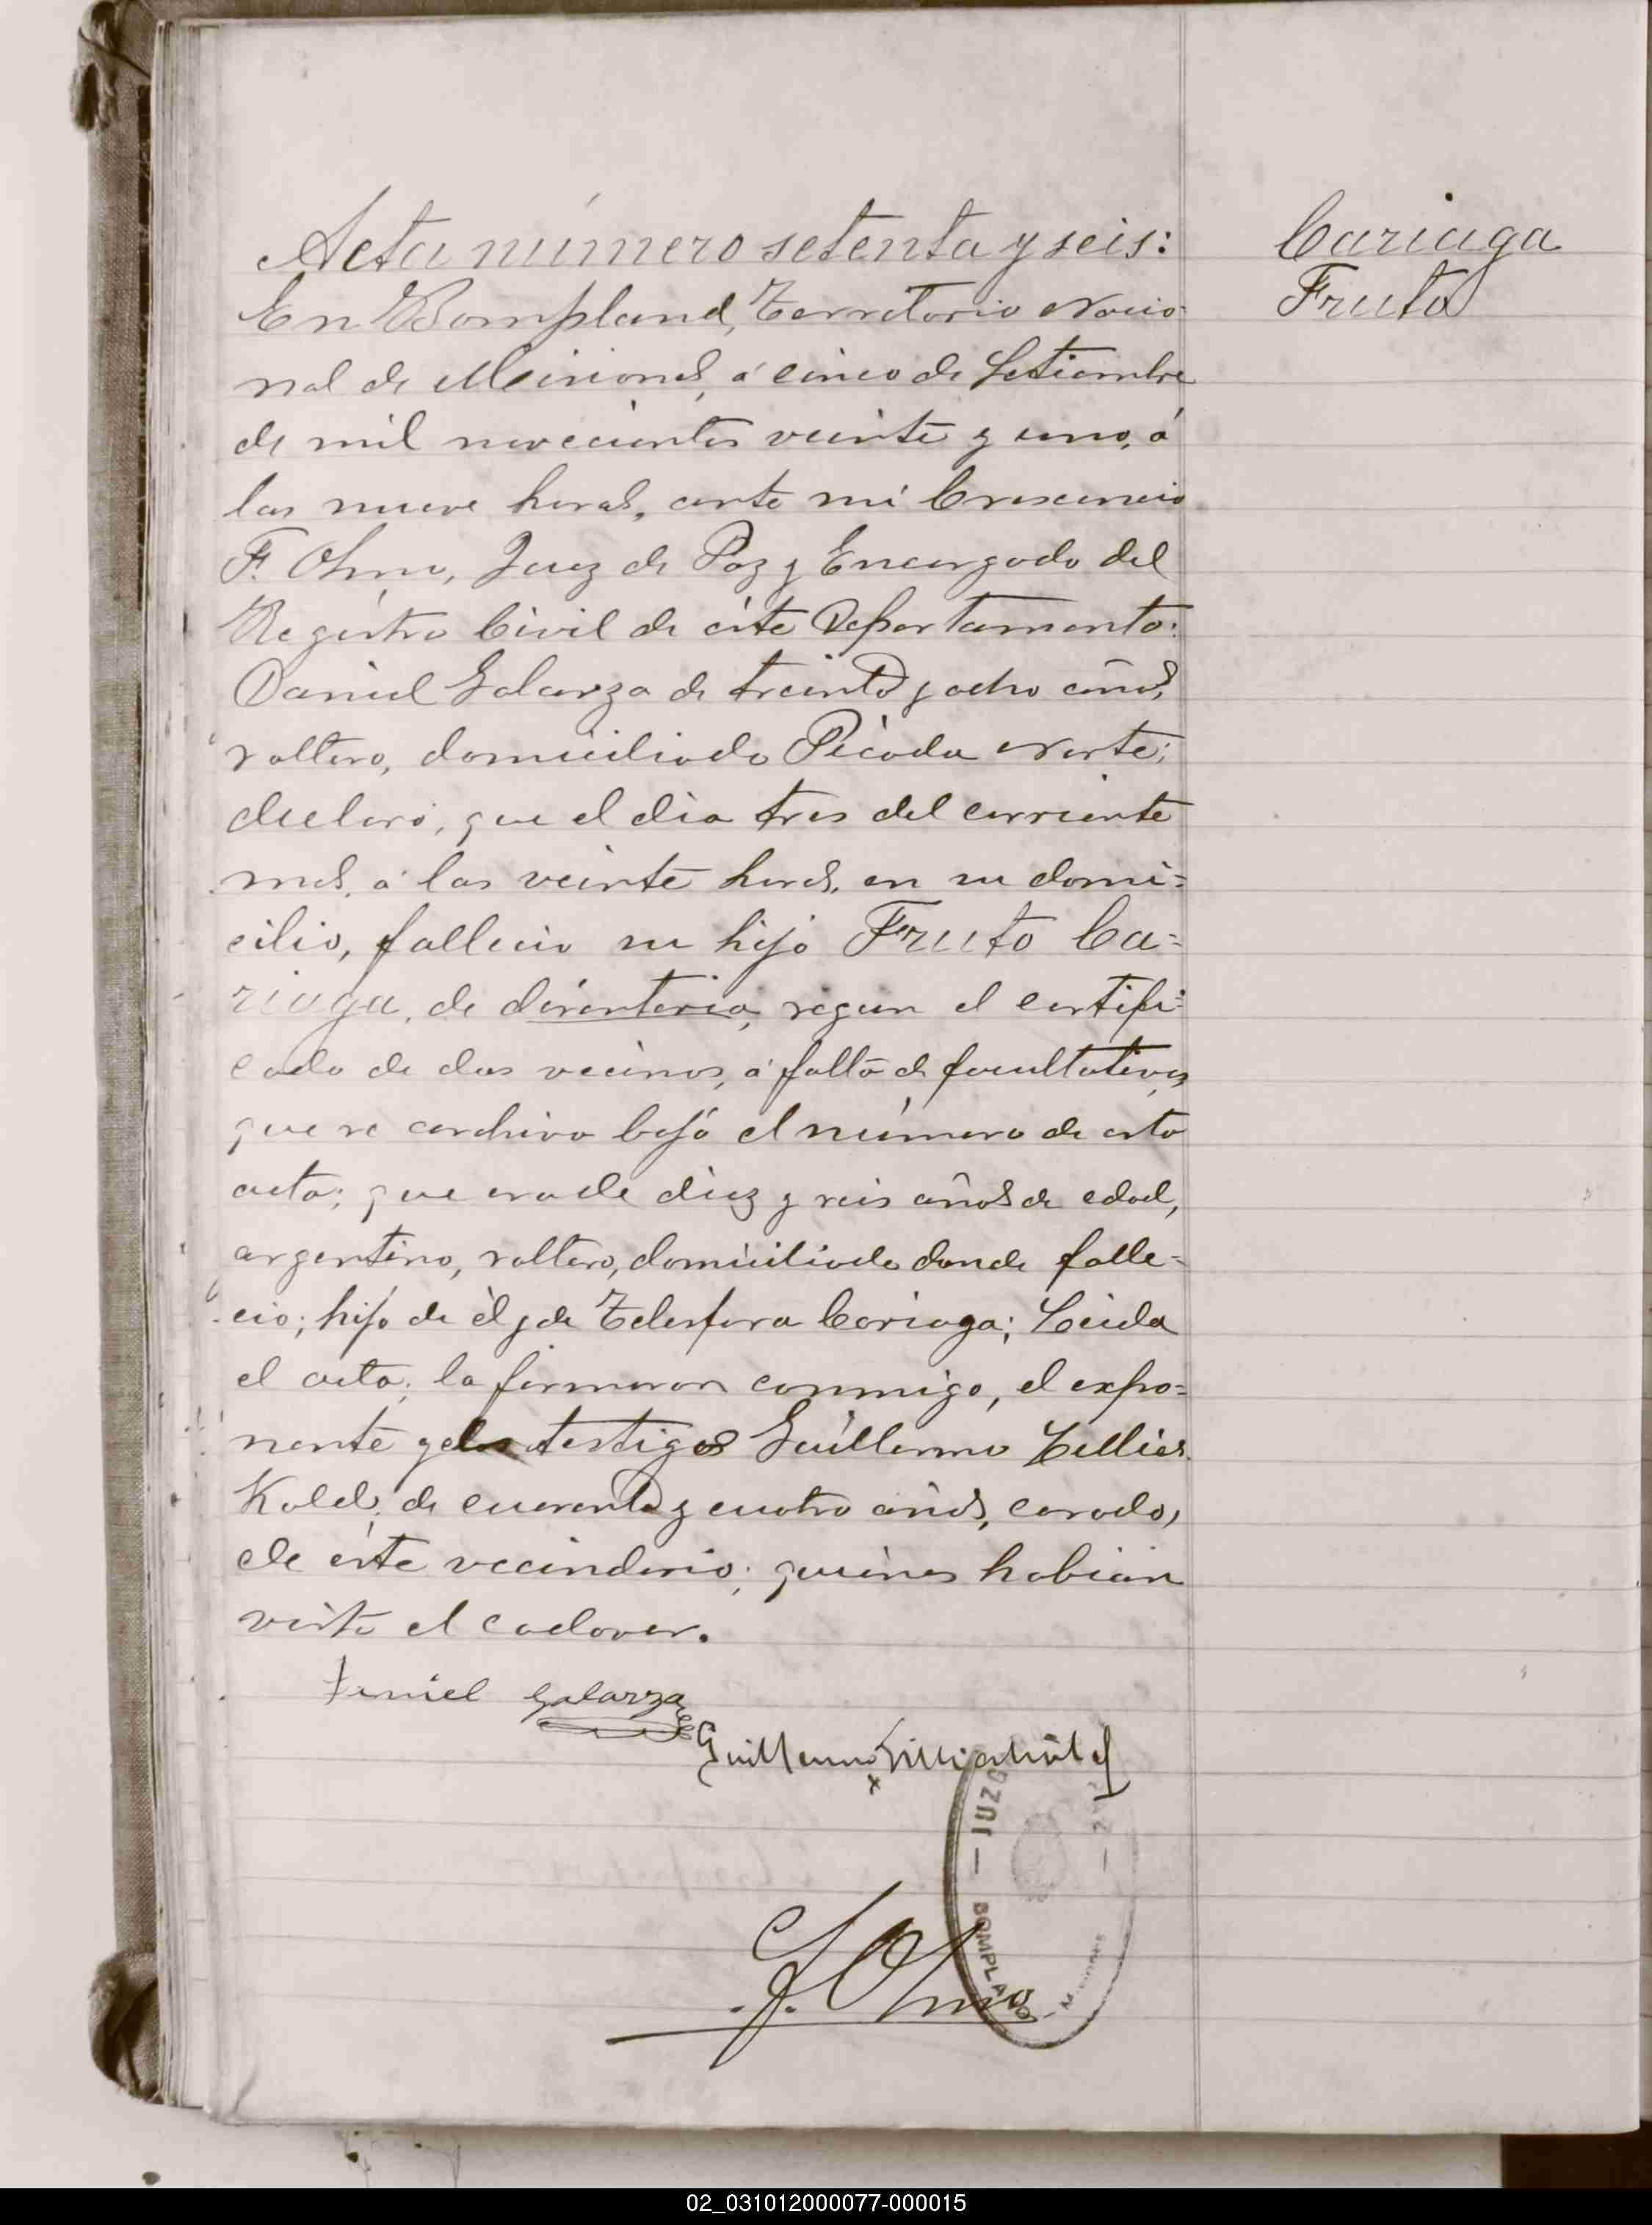 Acta número setenta y seis:
En Bompland, Territorio Nacio-
nal de Misiones, á cinco de Setiembre
de mil novecientos veinte y uno, á
las nueve horas, ante mi Crescencio
F. Olmo, Juez de Paz y Encargado del
Registro Civil de éste Departamento:
Daniel Galarza de treinta y ocho años,
soltero, domiciliado Picada Norte;
declaró, que el dia tres del corriente
mes, á las veinte horas, en su domi=
cilio, falleció su hijo Fruto Ca=
riaga, de disenteria, segun el certifi=
cado de dos vecinos, á falta de facultativos,
que se archiva bajo el número de esta
acta; que era de diez y seis años de edad,
argentino, soltero, domiciliado donde falle=
ció; hijo de él y de Telesfora Cariaga; Leida
el acta, la firmaron conmigo, el expo=
nente y los testigos Guillermo
de cuarenta y cuatro años, casado,
de éste vecindario; quienes habian
visto el cadaver.
Daniel Galarza
Guillermo
F. Olmo
JUZG
BOMPLAND - Misiones
Cariaga
Fruto
02_031012000077-000015